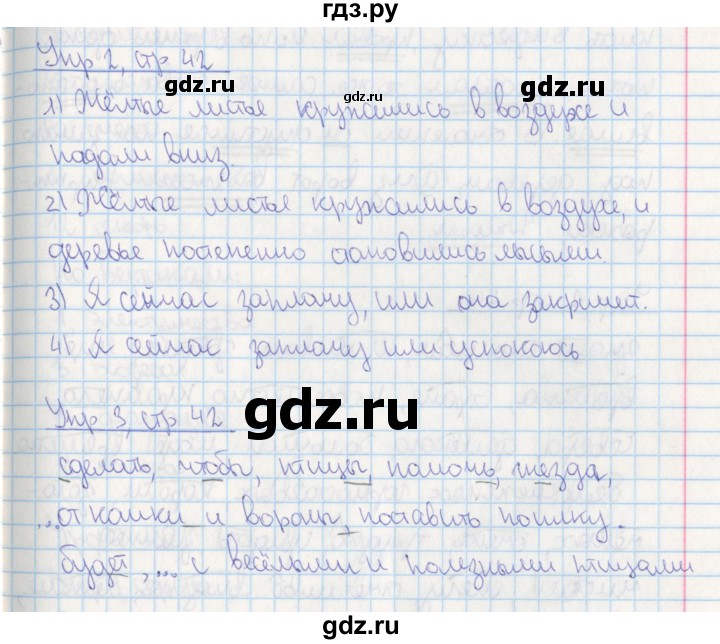 гдз.ру
Упр 2, стр 42
gdz.ru
gdz.ru
1) Жёлтые листья кружились в воздухе и
падали вниз.
2) Жёлтые листья кружились в воздухе, и
деревья постепенно становились лысыми.
3) Я сейчас заплачу, или она закричит.
4) Я сейчас заплачу или успокоюсь
gdz.ru
Упр 3, стр 42
сделать, чтобы, птицы, помочь, гнезда,
... от кошки и вороны, поставить поилку.
будет, ... с весёлыми и полезными птицами
gdz.ru